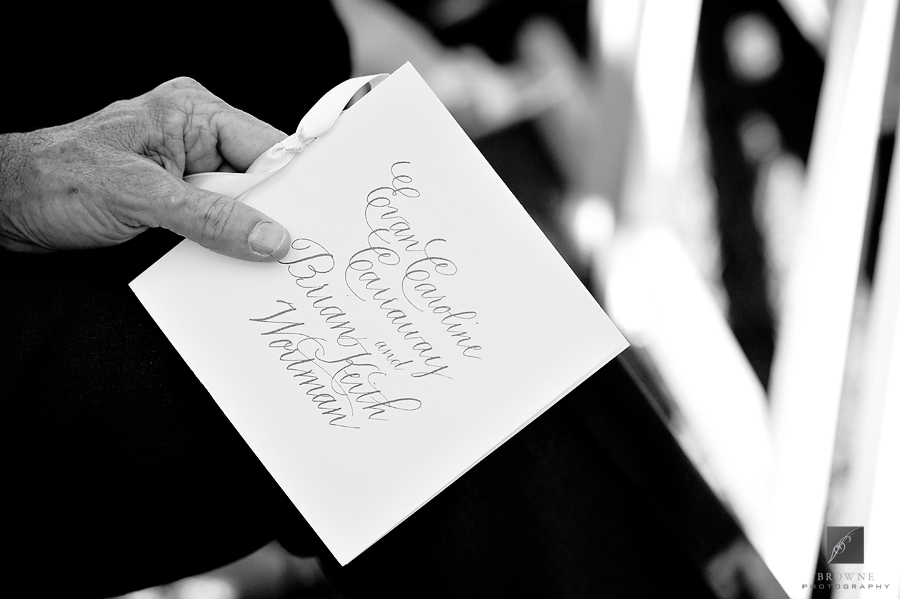 Evan Caroline
Carraway
and
Brian Keith
Woitman
BROWNE
PHOTOGRAPHY